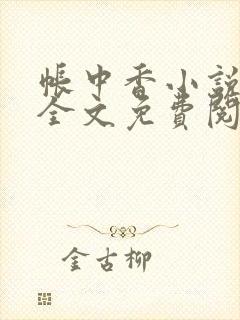 帳中香小說
全文免費閱
金古柳